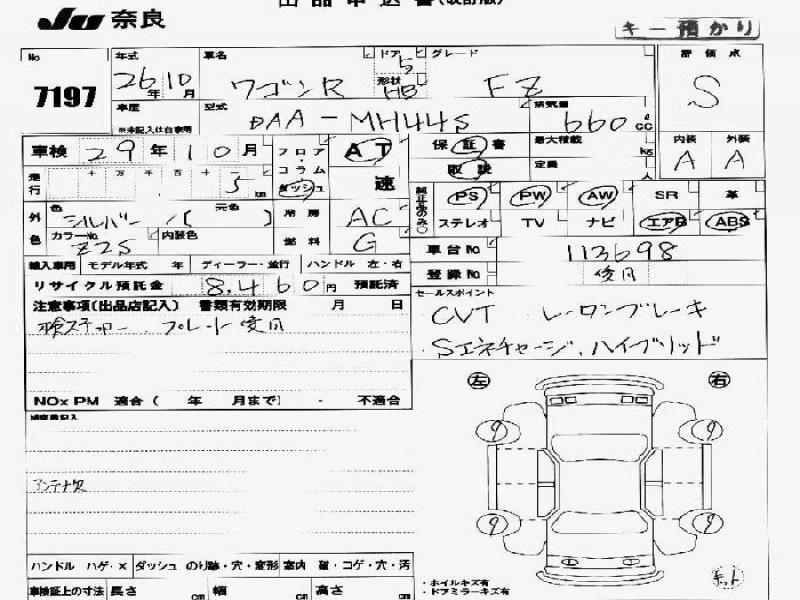 出品申込書(改訂版)
JU 奈良
キー預かり
No 年式 車名 ドア 5 グレード 評価点
7197 26年 10月 ワゴンR 形状 HB FZ S
車歴 型式 排気量
※未記入は自家用 DAA-MH44S 660 ℓ cc 内装 外装
車検 29年 10月 フロア・コラム ダッシュ AT 速 保証書 取説 最大積載 kg 定員 A A
走行 十 万 千 百 十 一 5 km
純正品のみ○ PS PW AW SR 革
ステレオ TV ナビ エアB ABS
外色 色 シルバー/( ) 元色 冷房 AC
カラーNo. Z2S 内装色 燃料 G
車台No 113698
輸入車用 モデル年式 年 ディーラー・並行 ハンドル 左・右
登録No 後日
リサイクル預託金 8,460円 預託済
セールスポイント
注意事項(出品店記入) 書類有効期限 月 日
CVT レーダーブレーキ
車検ステッカー、プレート後日
Sエネチャージ、ハイブリッド
NOx PM 適合( 年 月まで) ・ 不適合
左 右
検査員記入
9 9
アンテナ欠
9 9
ハンドル ハゲ・× ダッシュ のり跡・穴・変形 室内 破・コゲ・穴・汚
車検証上の寸法 長さ cm 幅 cm 高さ cm
・ホイルキズ有
・ドアミラーキズ有
キット